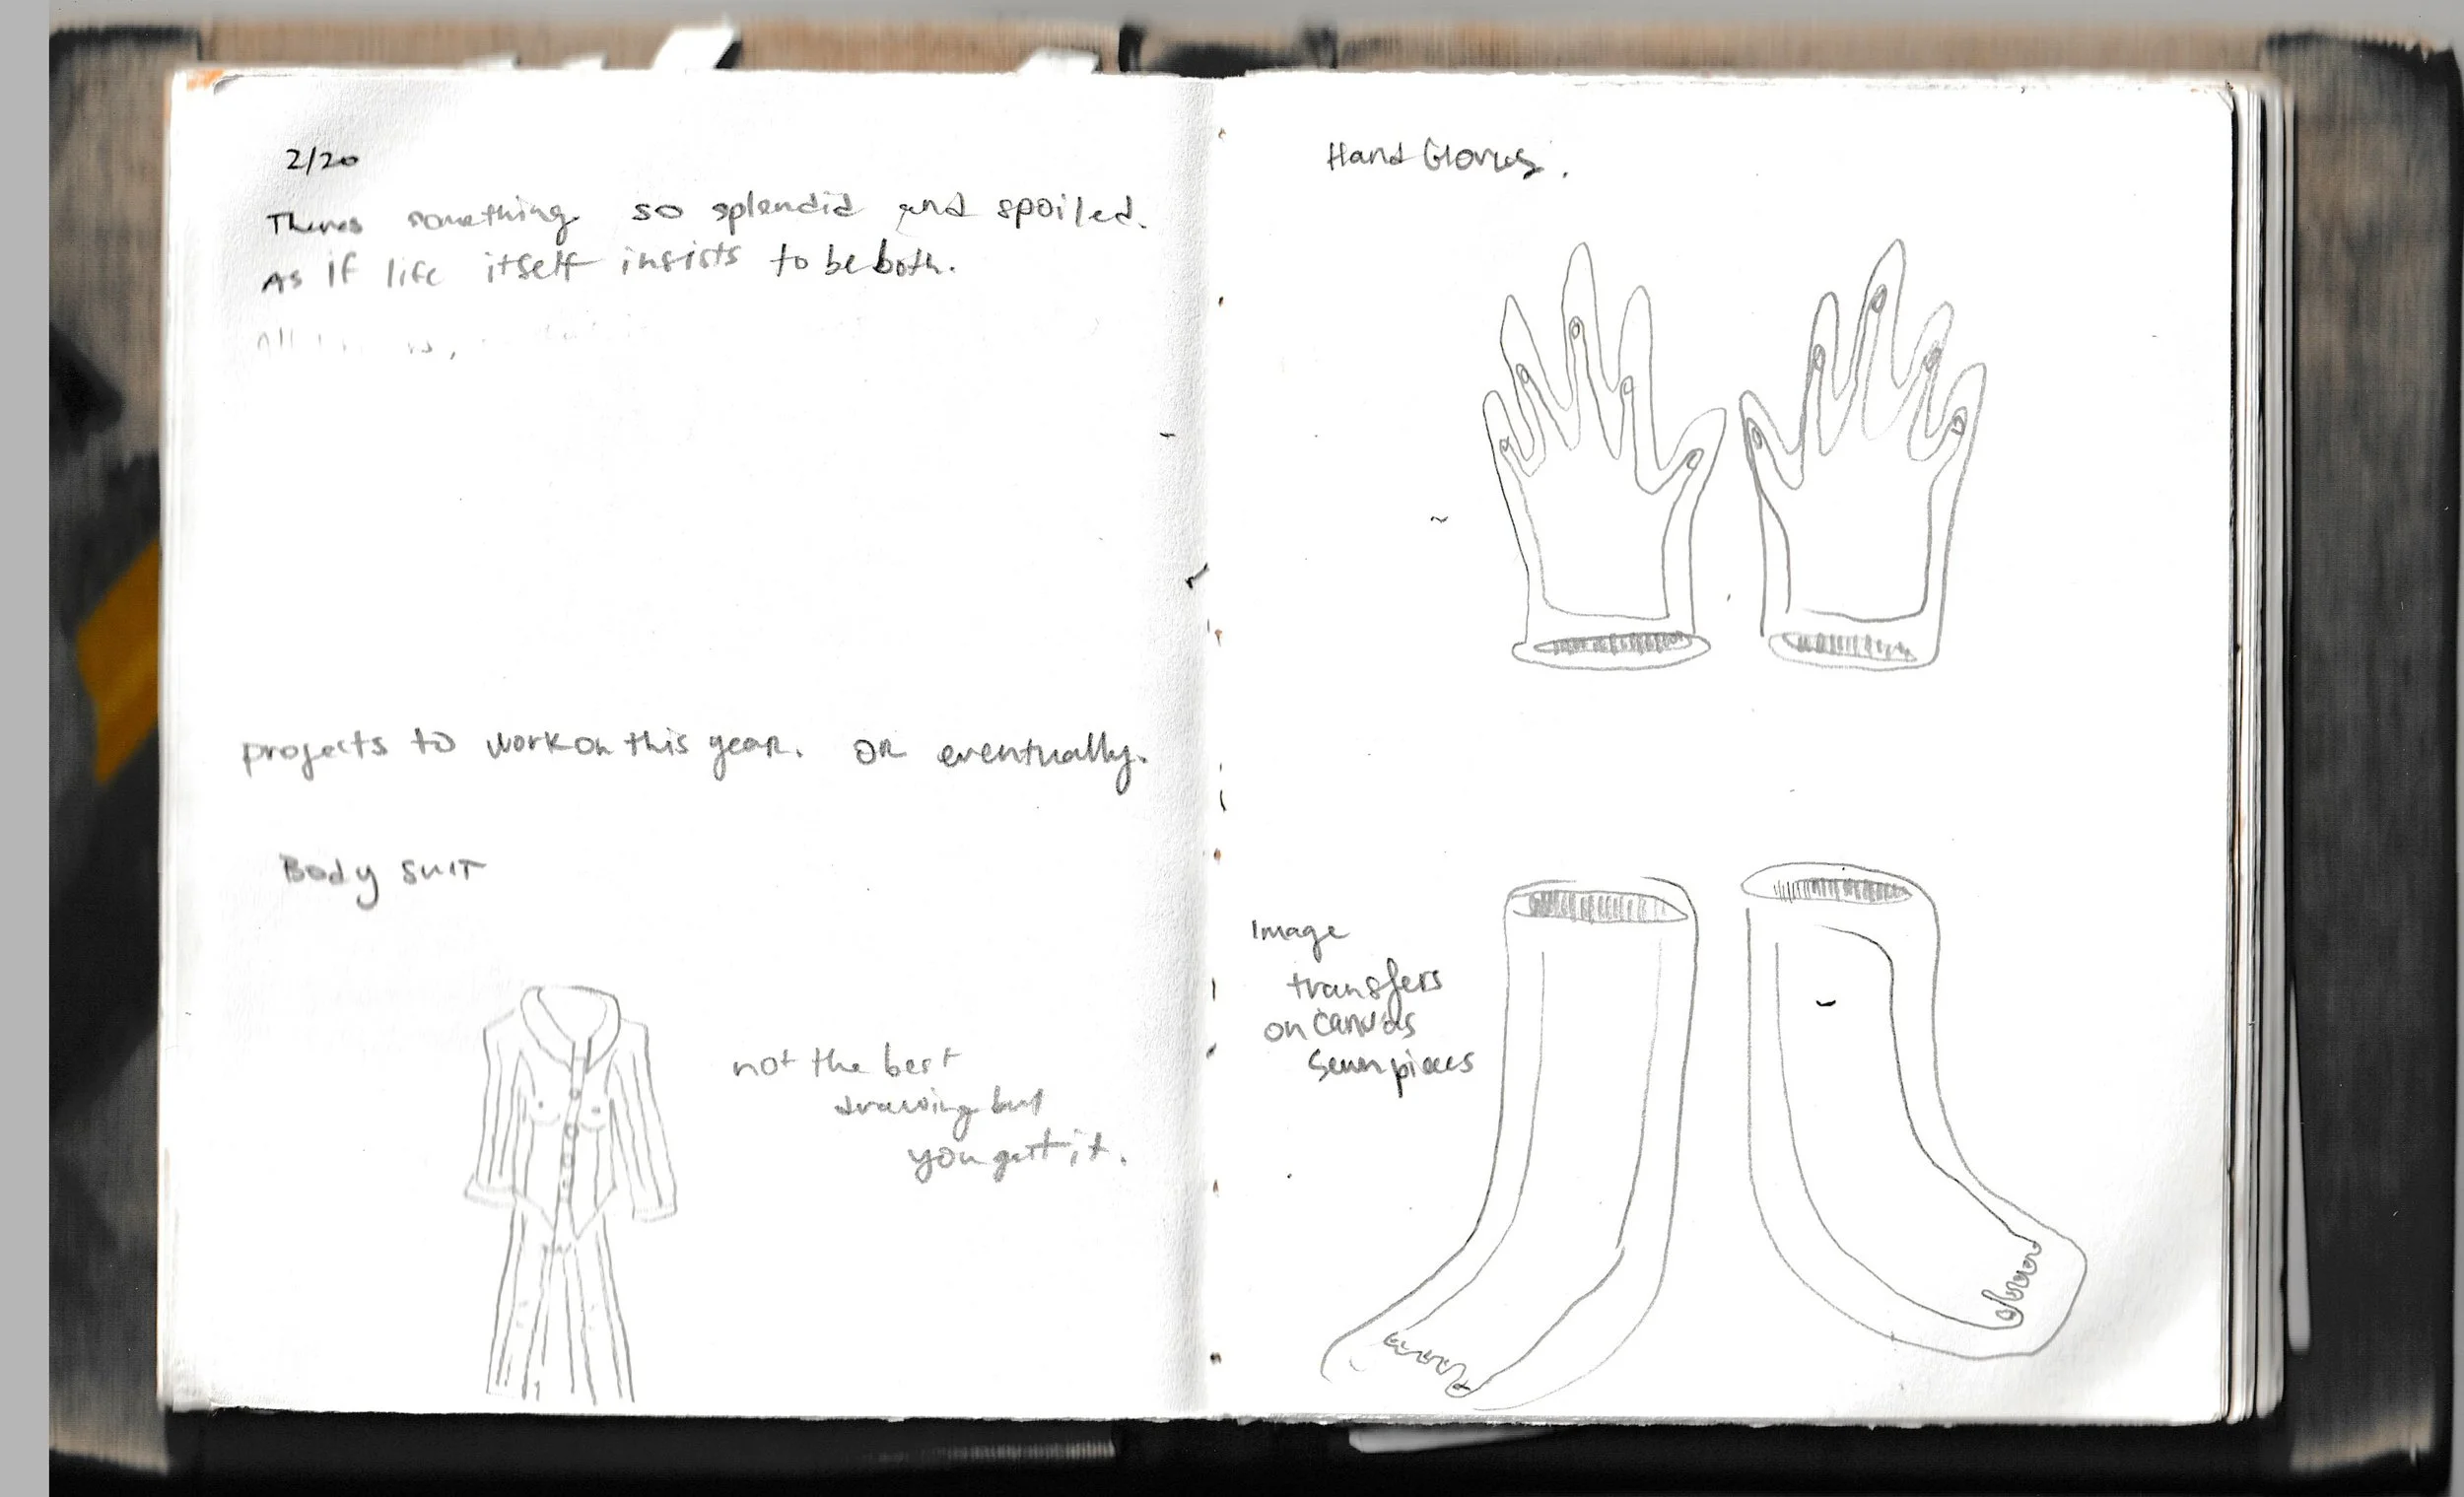 2/20
Theres something so splendid and spoiled.
As if life itself insists to be both.
All
projects to work on this year. OR eventually.
Body suit
not the best
drawing but
you get it.
Hand Gloves.
Image
transfers
on canvas
Sewn pieces